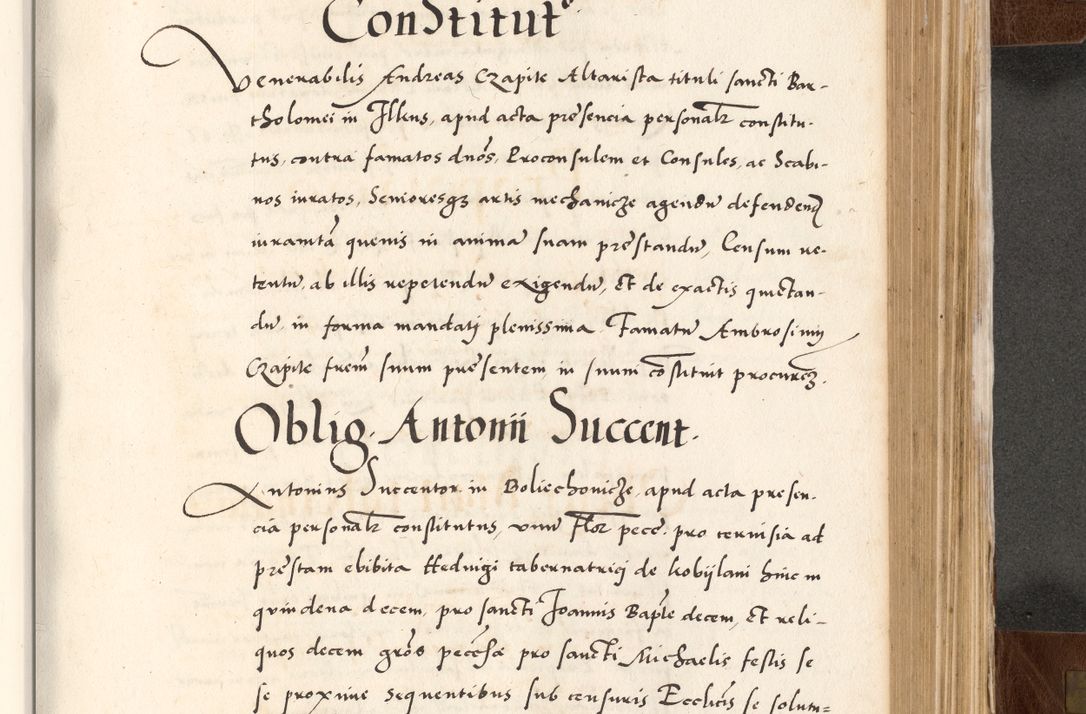 Constitut
Venerabilis Andreas Czapite Altarista tituli sancti Bar-
tholomei in Ilkus, apud acta presencia personalr constitu-
tus, contra famatos dnos, Proconsulem et Consules, ac Scabi-
nos iuratos, Senioresqz artis mechanicze agendu defendend
iuramta quevis in anima suam prestandu, Censum re-
tentu, ab illis repetendu exigendu, Et de exactis quietan-
du, in forma mandatj plenissima Famatu Ambrosium
Czapite frem suum presentem in suum constituit procurem.
Oblig. Antonii Succent.
Antonius Succentor in Boliechonicze, apud acta presen-
cia personalr constitutus, unu Flor pece. pro cervisia ad
prestam ebibita Hedvigi tabernatricj de kobijlani hinc in
quindena decem, pro sancti Joannis Bapte decem, Et reli-
quos decem gros pecese pro sancti Michaelis festis se
se proxime sequentibus sub censuris Ecclicis se solutu=